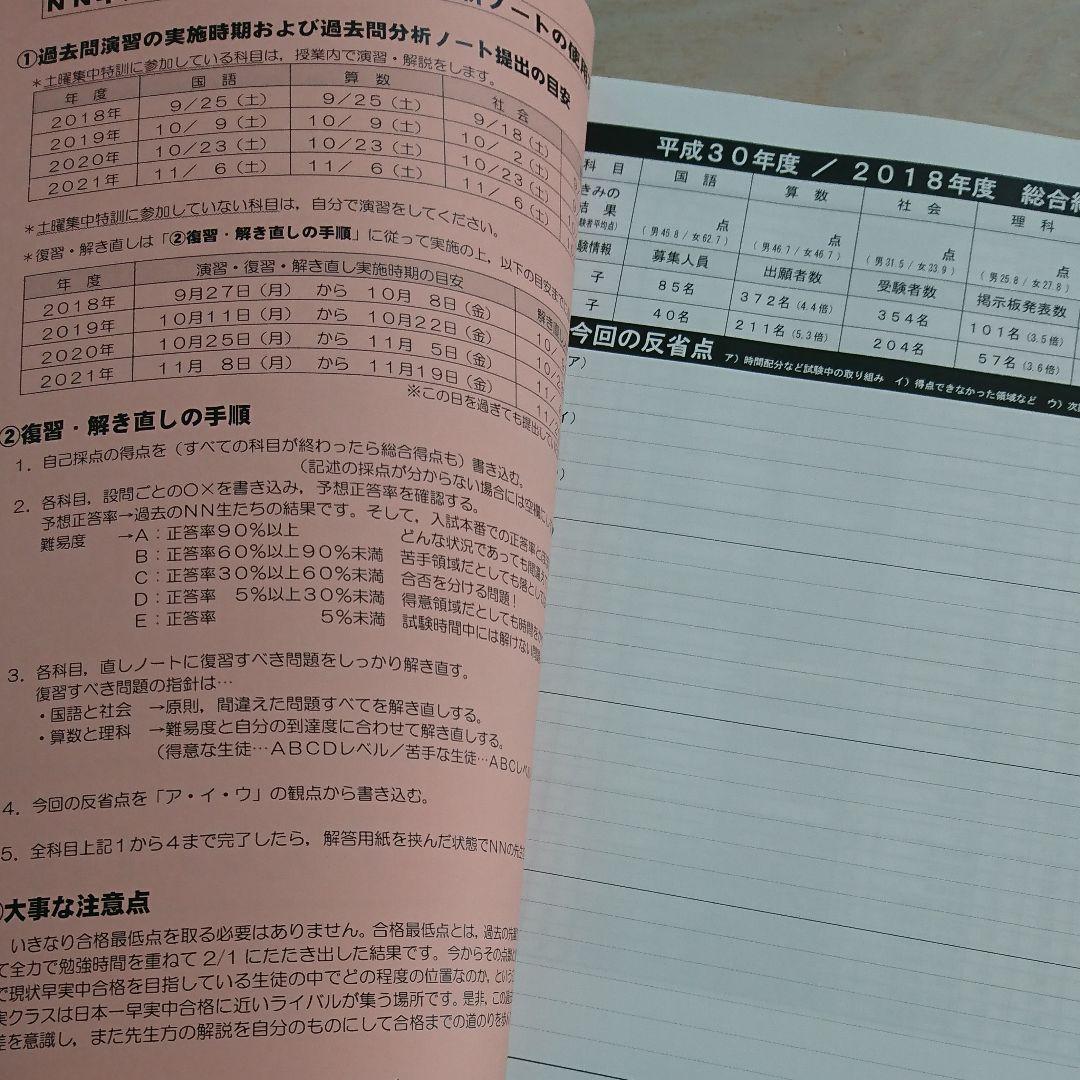 ノートの使用
①過去問演習の実施時期および過去問分析ノート提出の目安
＊土曜集中特訓に参加している科目は，授業内で演習・解説をします。
年 度 国 語 算 数 社 会
2018年 9／25（土） 9／25（土） 9／18（土）
2019年 10／ 9（土） 10／ 9（土） 10／ 2（土）
2020年 10／23（土） 10／23（土） 10／23（土）
2021年 11／ 6（土） 11／ 6（土） 11／ 6（土）
＊土曜集中特訓に参加していない科目は，自分で演習をしてください。
＊復習・解き直しは「②復習・解き直しの手順」に従って実施の上，以下の目安まで
年 度 演習・復習・解き直し実施時期の目安 解き直
2018年 9月27日（月） から 10月 8日（金） 10／
2019年 10月11日（月） から 10月22日（金） 10／2
2020年 10月25日（月） から 11月 5日（金） 11／
2021年 11月 8日（月） から 11月19日（金） 11／2
※この日を過ぎても提出して
②復習・解き直しの手順
1．自己採点の得点を（すべての科目が終わったら総合得点も）書き込む。
（記述の採点が分からない場合には空欄に
2．各科目，設問ごとの○×を書き込み，予想正答率を確認する。
予想正答率→過去のNN生たちの結果です。そして，入試本番での正答率と
難易度 →A：正答率90％以上 どんな状況であっても間違え
B：正答率60％以上90％未満 苦手領域だとしても落として
C：正答率30％以上60％未満 合否を分ける問題！
D：正答率 5％以上30％未満 得意領域だとしても時間を
E：正答率 5％未満 試験時間中には解けない問題
3．各科目，直しノートに復習すべき問題をしっかり解き直す。
復習すべき問題の指針は…
・国語と社会 →原則，間違えた問題すべてを解き直しする。
・算数と理科 →難易度と自分の到達度に合わせて解き直しする。
（得意な生徒…ABCDレベル／苦手な生徒…ABCレベル
4．今回の反省点を「ア・イ・ウ」の観点から書き込む。
5．全科目上記1から4まで完了したら，解答用紙を挟んだ状態でNNの先生
大事な注意点
いきなり合格最低点を取る必要はありません。合格最低点とは，過去の先輩
て全力で勉強時間を重ねて2/1にたたき出した結果です。今からその点数
で現状早実中合格を目指している生徒の中でどの程度の位置なのか，という
実クラスは日本一早実中合格に近いライバルが集う場所です。是非，この
差を意識し，また先生方の解説を自分のものにして合格までの道のりを歩ん
平成30年度 ／ 2018年度 総合
科 目 国 語 算 数 社 会 理 科
きみの
結 果 点 点 点
験者平均点） （男45.8／女62.7） （男46.7／女46.7） （男31.5／女33.9） （男25.8／女27.8）
験情報 募集人員 出願者数 受験者数 掲示板発表数
子 85名 372名（4.4倍） 354名 101名（3.5倍）
子 40名 211名（5.3倍） 204名 57名（3.6倍）
今回の反省点 ア）時間配分など試験中の取り組み イ）得点できなかった領域など ウ）次
ア）
イ）